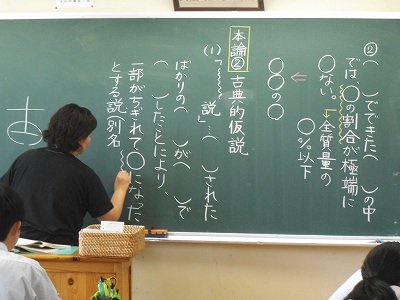 ②(　)でできた(　)の中
では、〇の割合が極端に
〇ない。→全質量の
〇%以下
⇐
〇〇の〇
本論② 古典的仮説
(1)「　　説」…(　)された
ばかりの(　)が(　)で
(　)したことにより、
一部がちぎれて〇になった、
とする説(別名